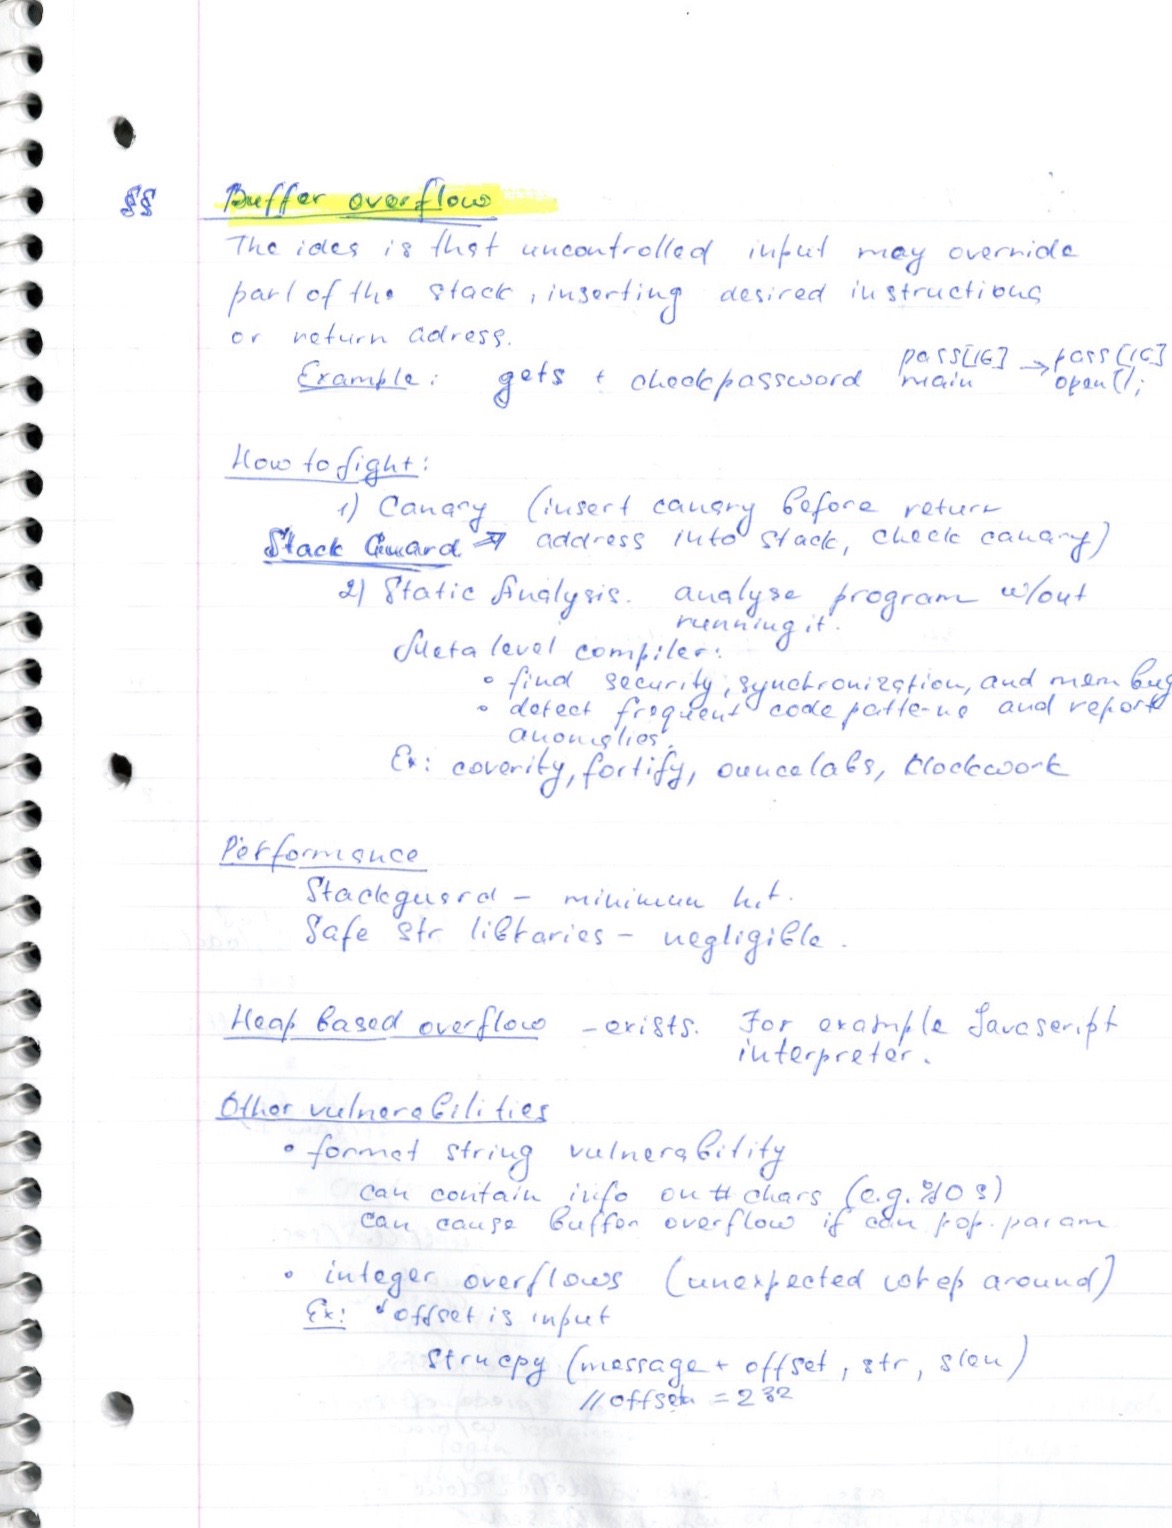 §§ Buffer overflow
The idea is that uncontrolled input may override
part of the stack, inserting desired instructions
or return adress.
Example: gets + checkpassword pass[16] main → pass[16] open();
How to fight:
1) Canary (insert canary before return
Stack Guard → address into stack, check canary)
2) Static Analysis. analyse program w/out
running it.
Meta level compiler:
• find security, synchronization, and mem bug
• detect frequent code patterns and report
anomalies.
Ex: coverity, fortify, ouncelabs, klockwork
Performance
Stackguard - minimum hit.
Safe str libraries - negligible.
Heap based overflow - exists. For example Javascript
interpreter.
Other vulnerabilities
• format string vulnerability
can contain info on # chars (e.g. %10s)
can cause buffer overflow if can pop. param
• integer overflows (unexpected wrap around)
Ex: offset is input
strncpy (message + offset, str, slen)
// offset = 2^32